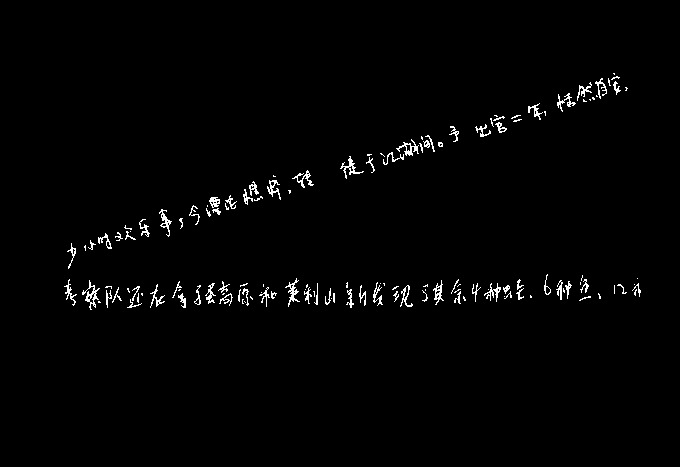 少小时欢乐事,今漂沦憔悴,转徙于江湖间。予出官二年,恬然自安,
考察队还在拿张高原和莱利山新发现了其余4种蛙、6种鱼、12